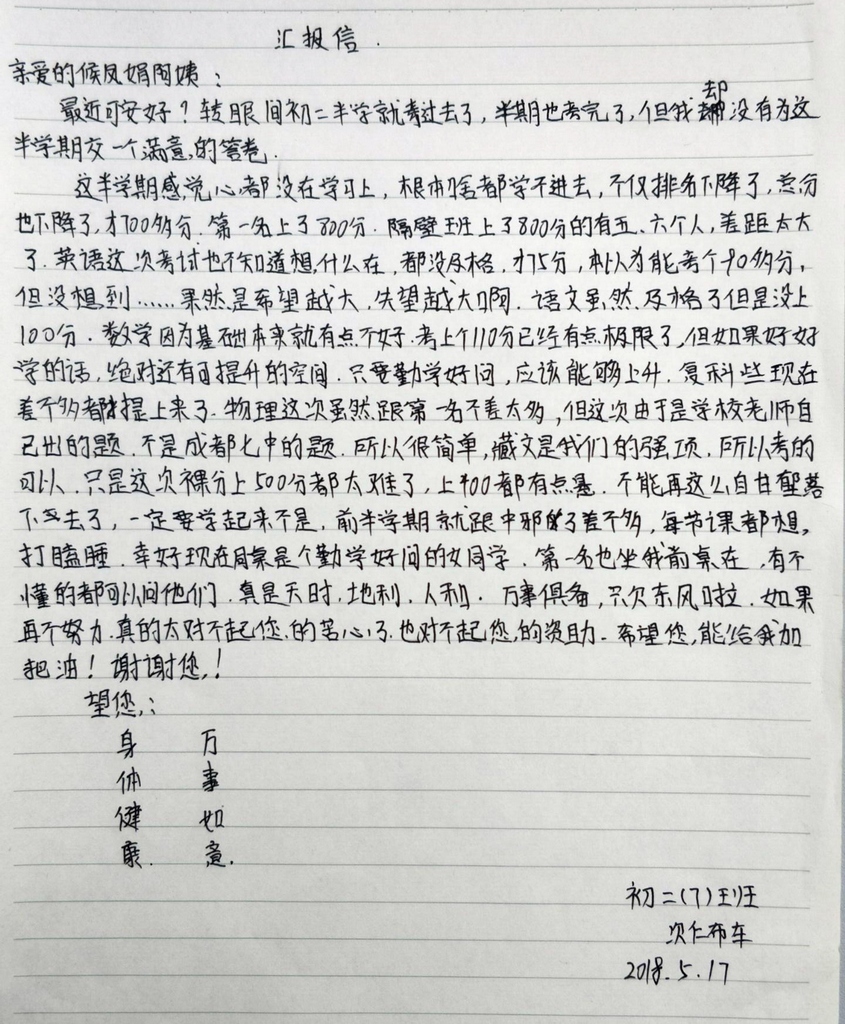 汇报信.
亲爱的候凤娟阿姨：
最近可安好？转眼间初二半学就考过去了，半期也考完了，但我却没有为这
半学期交一个满意的答卷.
这半学期感觉心都没在学习上，根本啥都学不进去，不仅排名下降了，总分
也下降了，才700多分.第一名上了800分.隔壁班上了800分的有五、六个人，差距太大
了.英语这次考试也不知道想什么在，都没及格，才75分，本以为能考个90多分，
但没想到……果然是希望越大，失望越大啊.语文虽然及格了但是没上
100分.数学因为基础本来就有点不好.考上个110分已经有点极限了，但如果好好
学的话，绝对还有可提升的空间.只要勤学好问，应该能够上升.复科些现在
差不多都提上来了.物理这次虽然跟第一名不差太多，但这次由于是学校老师自
己出的题.不是成都七中的题.所以很简单，藏文是我们的强项.所以考的
可以.只是这次裸分上500分都太难了，上400都有点悬.不能再这么自甘堕落
下去了，一定要学起来不是，前半学期就跟中邪了差不多，每节课都想
打瞌睡.幸好现在同桌是个勤学好问的女同学.第一名也坐我前桌在，有不
懂的都可以问他们.真是天时.地利.人利.万事俱备，只欠东风啦.如果
再不努力.真的太对不起您的苦心了.也对不起您的资助.希望您能给我加
把油！谢谢您！
望您：
身 万
体 事
健 如
康. 意.
初二(7)班
次仁布车
2018.5.17